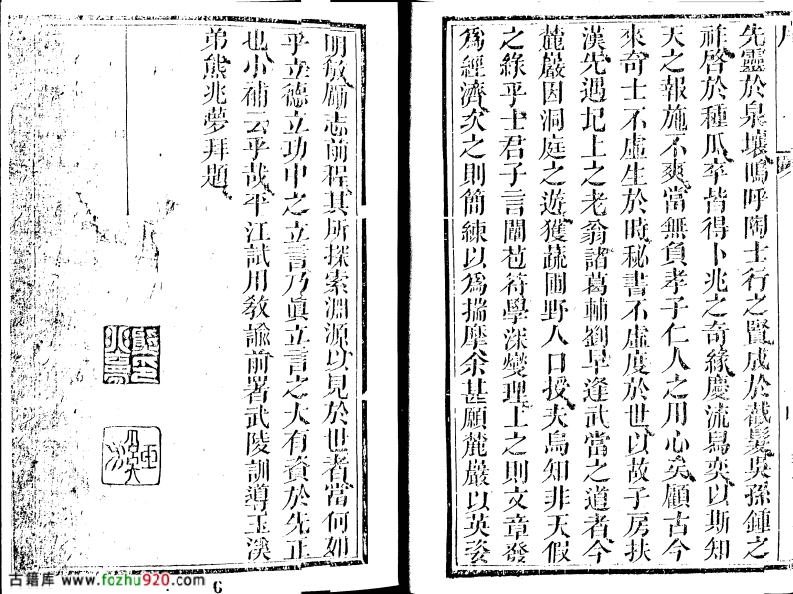 先靈於泉壤嗚呼陶士行之賢成於截髮吳孫鍾之
祥啓於種瓜卒皆得卜兆之奇緣慶流舄奕以斯知
天之報施不爽當無負孝子仁人之用心矣顧古今
來奇士不虛生於時秘書不虛度於世以故子房扶
漢先遇圯上之老翁諸葛輔劉早逢武當之道者今
麓巖因洞庭之遊獲蔬圃野人口授夫烏知非天假
之緣乎士君子言闡苞符學深變理上之則文章發
爲經濟次之則簡練以爲揣摩余甚願麓巖以英姿
明敏厲志前程其所探索淵源以見於世者當何如
乎立德立功中之立言乃眞立言之大有資於先正
也小補云乎哉平江試用敎諭前署武陵訓導玉溪
弟熊兆夢拜題
古籍库 www.fozhu920.com
6